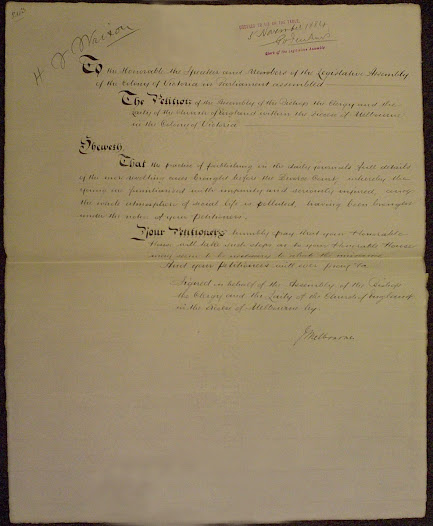 H J Wrixon
ORDERED TO LIE ON THE TABLE,
5 November 1884
Clerk of the Legislative Assembly
To the Honorable the Speaker and Members of the Legislative Assembly
of the Colony of Victoria in Parliament assembled
The Petition of the Assembly of the Bishop the Clergy and the
Laity of the Church of England within the Diocese of Melbourne
in the Colony of Victoria
Sheweth
That the practice of publishing in the daily journals full details
of the more revolting cases brought before the Divorce Court, whereby the
young are familiarised with impurity and seriously injured, and
the whole atmosphere of social life is polluted, having been brought
under the notice of your Petitioners,
Your Petitioners humbly pray that your Honorable
House will take such steps as to your Honorable House
may seem to be necessary to abate the nuisance
And your Petitioners will ever pray &c
Signed on behalf of the Assembly of the Bishop
the Clergy and the Laity of the Church of England
in the Diocese of Melbourne by.
J Melbourne